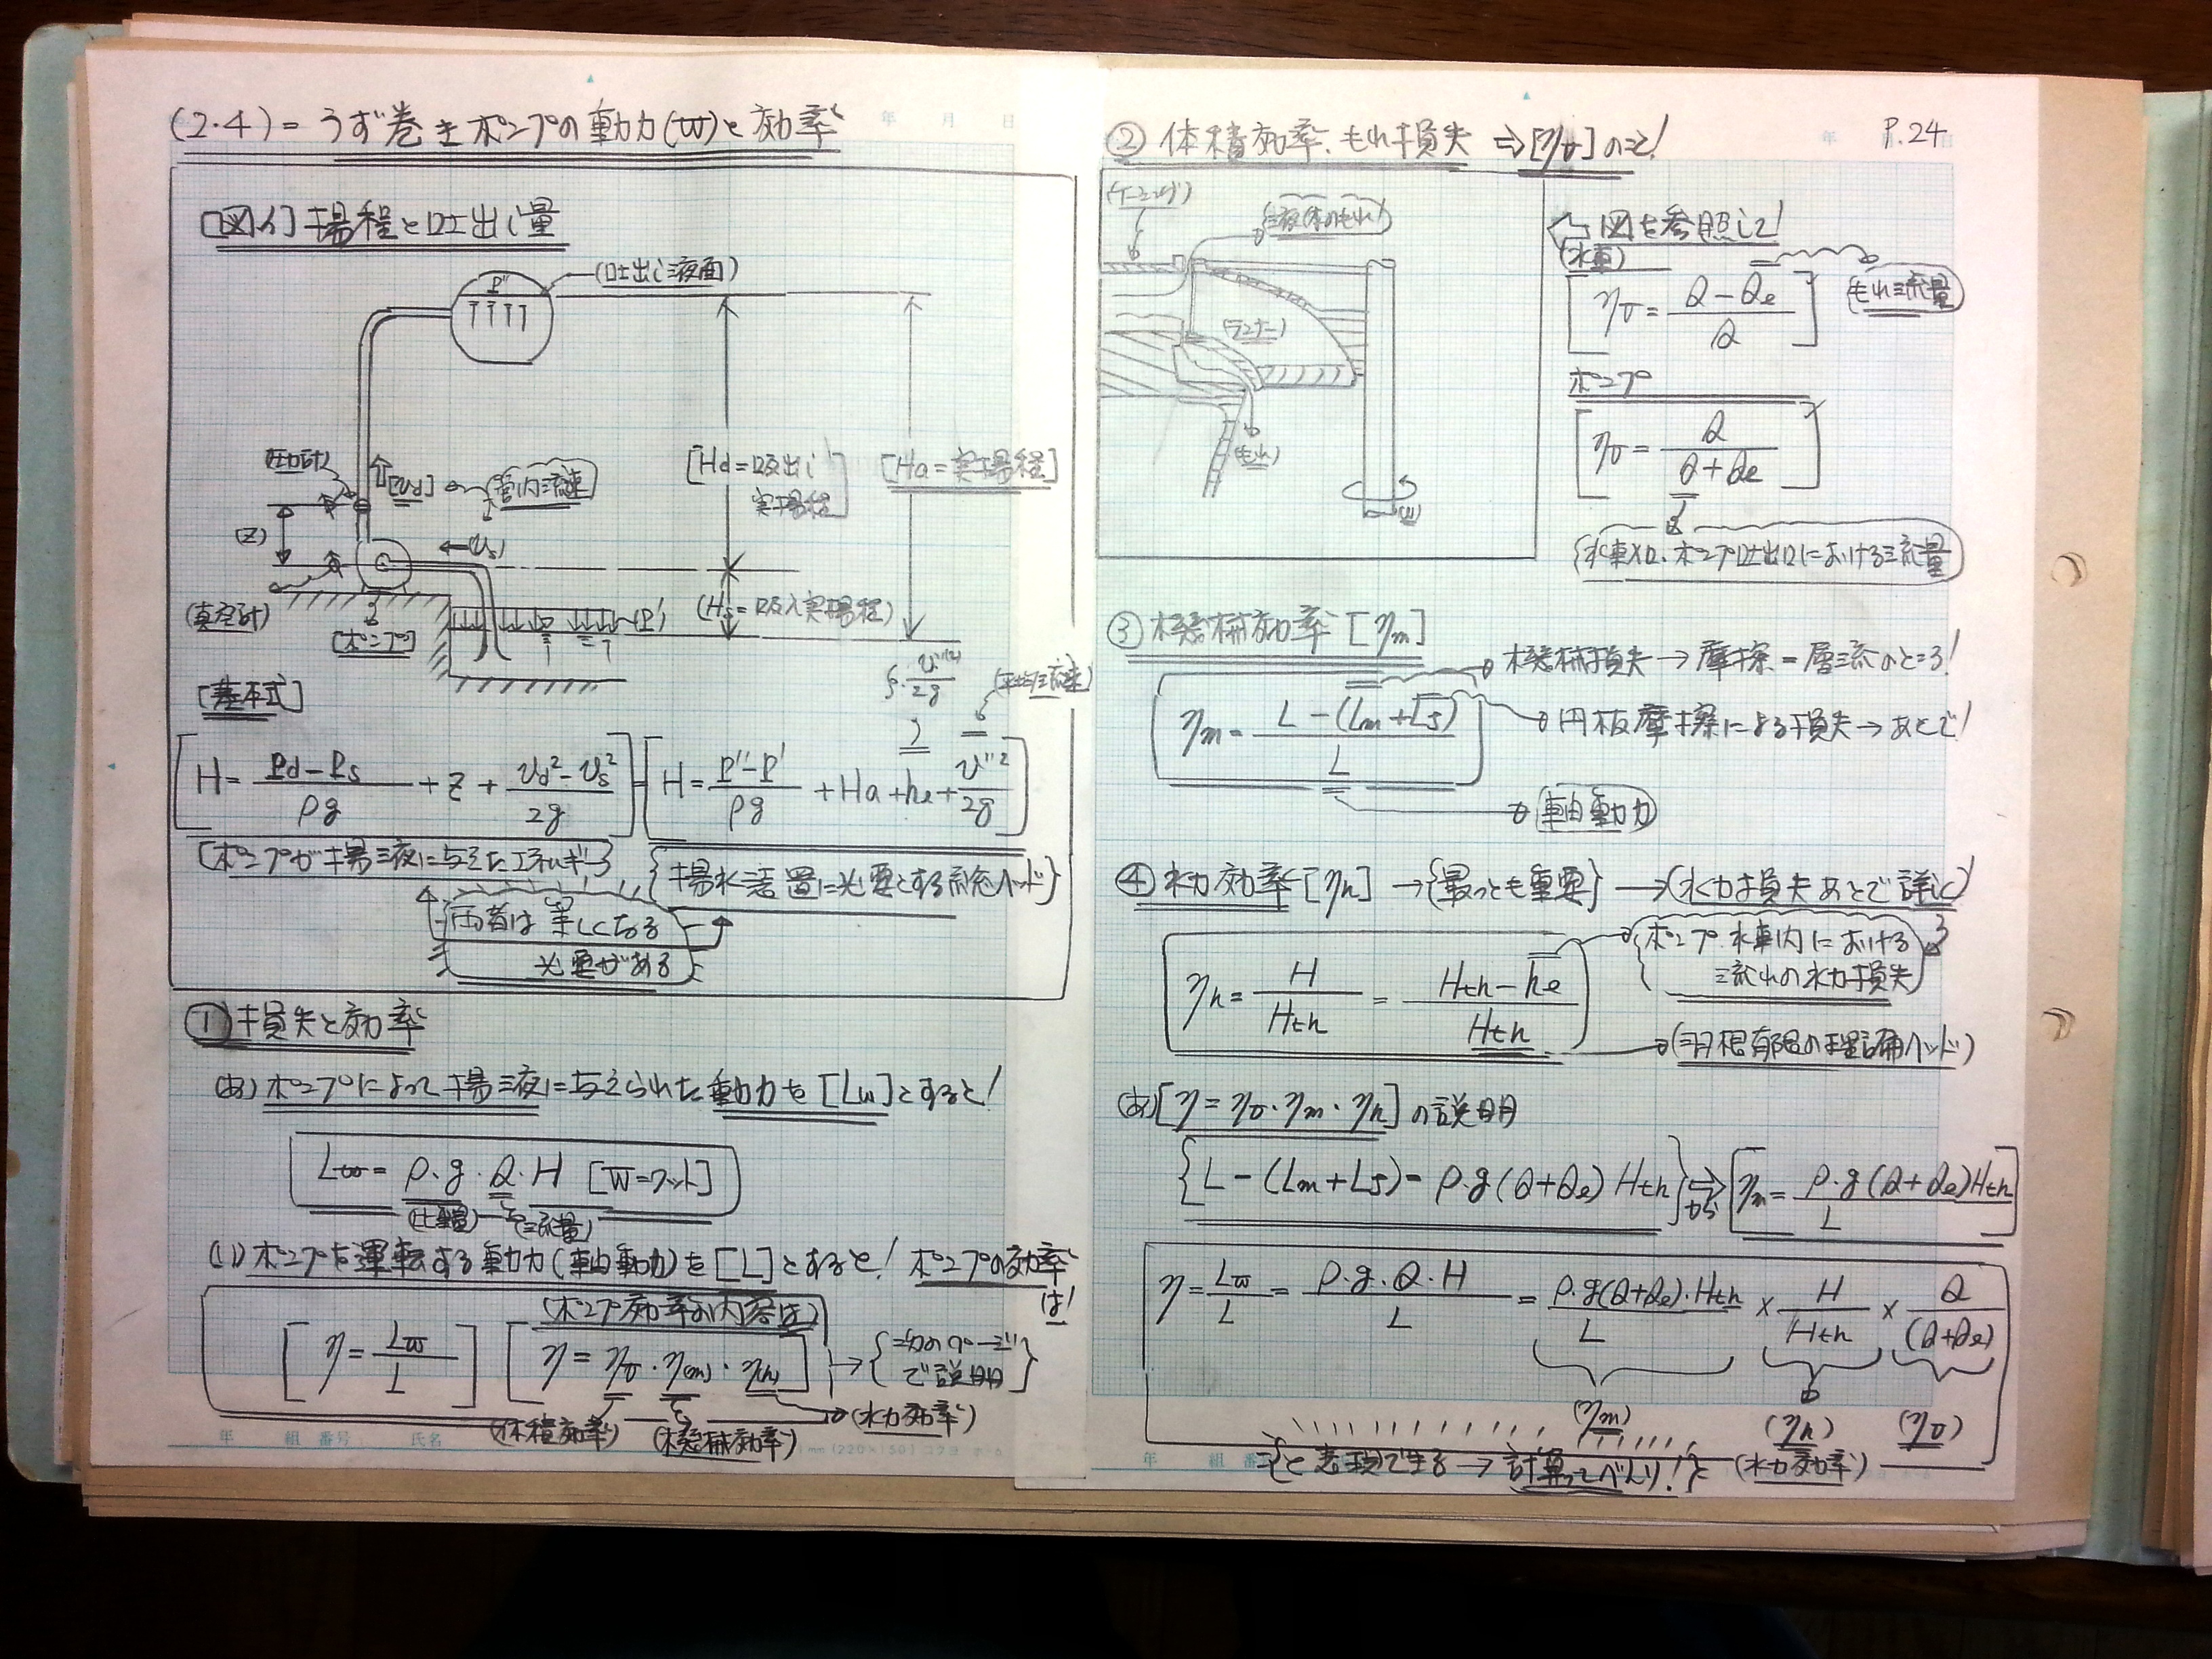 (2.4) = うず巻きポンプの動力(W)と効率
[図1] 揚程と吐出し量
P''
(吐出し液面)
[Hd=吸出し
実揚程]
[Ha=実揚程]
圧力計
[Vd]
管内流速
(Z)
(Vs)
(真空計)
[ポンプ]
(P')
(Hs=吸入実揚程)
[基本式]
ζ・v''²/2g
(平均流速)
[H = (Pd−Ps)/ρg + Z + (Vd²−Vs²)/2g] = [H = (P''−P')/ρg + Ha + hl + V''²/2g]
[ポンプが揚液に与えたエネルギー]
{揚水装置に必要とする総ヘッド}
両者は等しくなる
必要がある
① 損失と効率
(あ) ポンプによって揚液に与えられた動力を[Lw]とすると!
Lw = ρ・g・Q・H [W=ワット]
(比重量) (流量)
(い) ポンプを運転する動力(軸動力)を[L]とすると! ポンプの効率
は!
(ポンプ効率の内容は)
[η = Lw/L] [η = ηv・η(m)・η(h)] → {次のページ
で説明}
(体積効率) (機械効率) (水力効率)
年 組 番号 氏名
年 月 日
P.24
② 体積効率、もれ損失 ⇒ [ηv]のこと!
(ケーシング)
液体のもれ
(ランナー)
(もれ)
図を参照して!
(水車)
[ηv = (Q−Qe)/Q]
もれ流量
ポンプ
[ηv = Q/(Q+Qe)]
{水車入口、ポンプ吐出口における流量
③ 機械効率 [ηm]
機械損失 → 摩擦 = 層流のところ!
ηm = (L−(Lm+Ls))/L
円板摩擦による損失 → あとで!
軸動力
④ 水力効率 [ηh] → {最っとも重要} → (水力損失あとで詳しく)
ηh = H/Hth = (Hth−he)/Hth
ポンプ、水車内における
流れの水力損失
(羽根有限の理論ヘッド)
(あ) [η = ηv・ηm・ηh] の説明
{L−(Lm+Ls) = ρ・g(Q+Qe)Hth} ⇒ から [ηm = ρ・g(Q+Qe)Hth/L]
η = Lw/L = ρ・g・Q・H/L = ρ・g(Q+Qe)・Hth/L × H/Hth × Q/(Q+Qe)
(ηm) (ηh) (ηv)
{と表現できる → 計算ってべんり!} (水力効率)
年 組